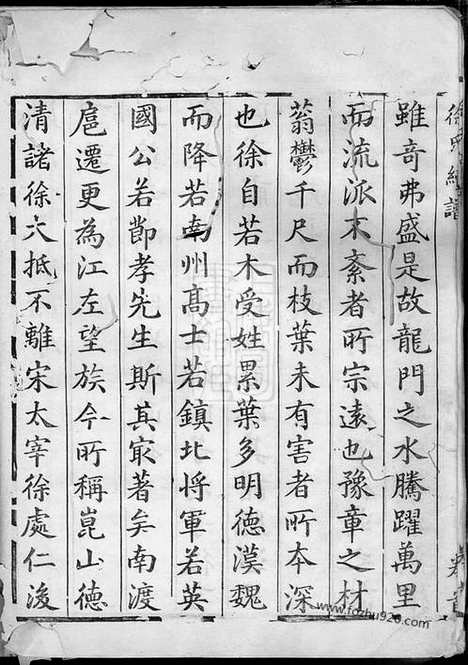 雖奇弗盛是故龍門之水騰躍萬里
而流派不紊者所宗遠也豫章之材
蓊鬱千尺而枝葉未有害者所本深
也徐自若木受姓累葉多明德漢魏
而降若南州高士若鎮北将軍若英
國公若節孝先生斯其最著矣南渡
扈遷更為江左望族今所稱崑山德
清諸徐大抵不離宋太宰徐處仁後
www.fozhu920.com